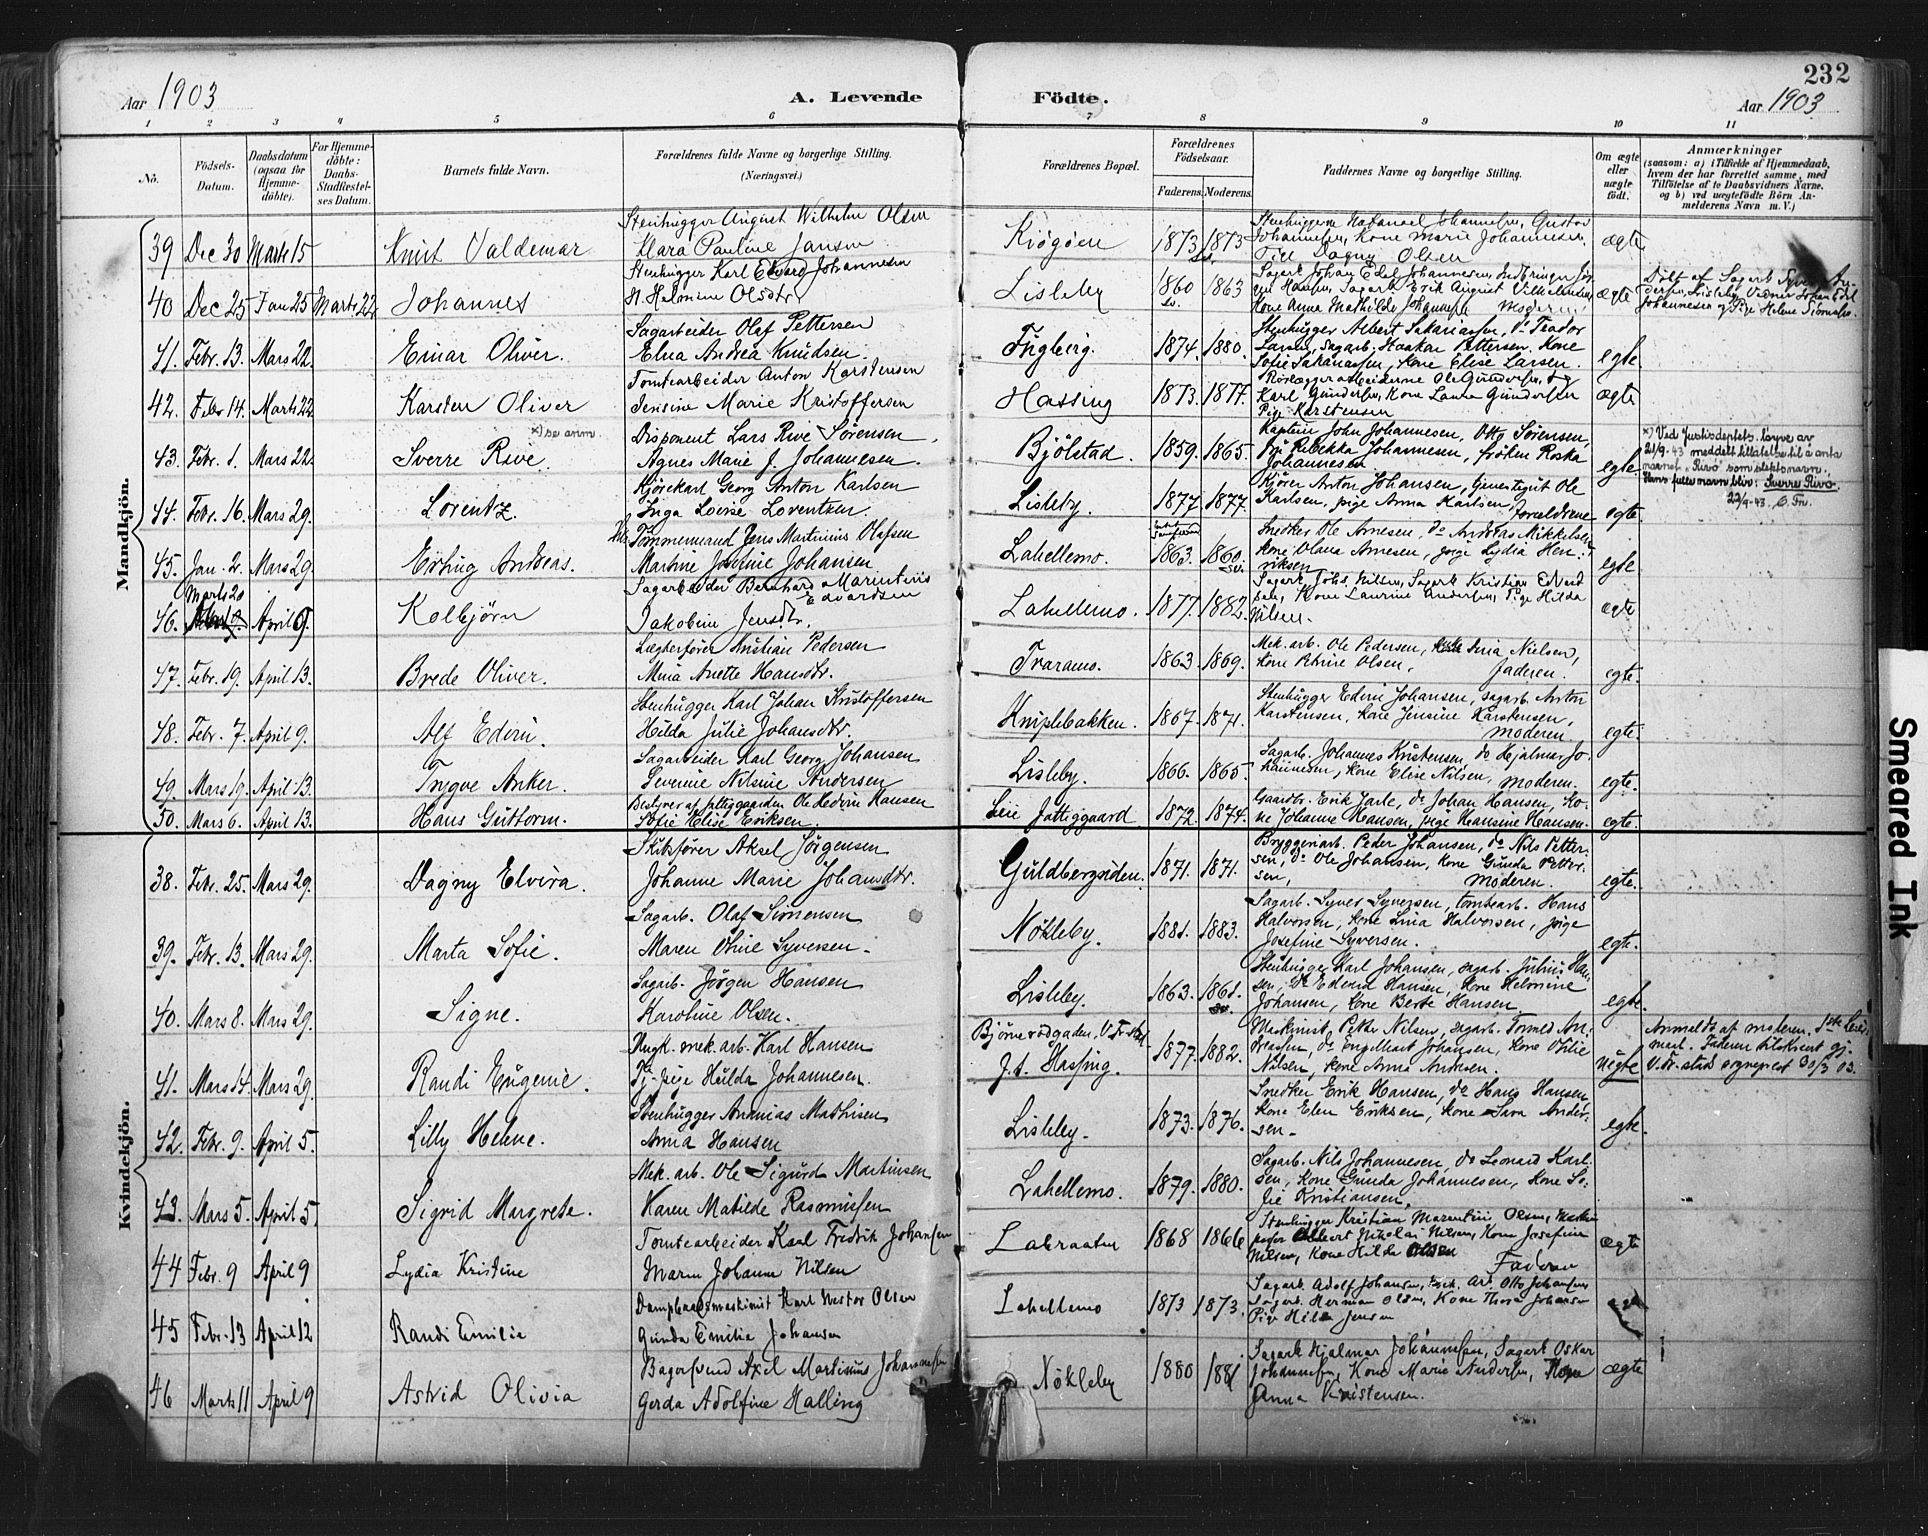 232
Aar 1903
A. Levende Födte.
Aar 1903
1 2 3 4 5 6 7 8 9 10 11
No.
Födsels-Datum.
Daabsdatum (ogsaa for Hjemme-döbte).
For Hjemme-döbte: Daabs-Stadfæstel-ses Datum.
Barnets fulde Navn.
Forældrenes fulde Navne og borgerlige Stilling.
(Næringsvei.)
Forældrenes Bopæl.
Forældrenes Födselsaar.
Faderens. Moderens.
Faddernes Navne og borgerlige Stilling.
Om ægte eller uægte födt.
Anmærkninger
(saasom: a) i Tilfælde af Hjemmedaab,
hvem der har forrettet samme, med
Tilföielse af to Daabsvidners Navne,
og b) ved uægtefödte Börn An-
melderens Navn m. V.)
Mandkjön.
39 Dec 30 Marts 15 Knut Valdemar
Stenhugger August Wilhelm Olsen
Klara Pauline Jansen
Kiøgøen 1873 1873
Johannesen, Kone Marie Johannesen,
Olsen
ægte
40 Dec 25 Jan 25 Marts 22 Johannes
Stenhugger Karl Edvard Johannesen
H. Helmine Olsdtr
Lisleby 1860 1863
Kone Anna Mathilde Johannesen Moderen
ægte
41. Febr. 13. Mars 22. Einar Oliver.
Sagarbeider Olaf Pettersen
Elna Andrea Knudsen.
Fuglevig. 1874. 1880.
Larsen, Sagarb. Haakon Pettersen, Kone
Kone Elise Larsen.
egte.
42. Febr 14. Marts 22 Karsten Oliver
Tomtearbeider Anton Karstensen
Jensine Marie Kristoffersen
Hassing 1873. 1877.
Karl Gundersen, Kone Laura Gundersen
Pige Karstensen
ægte
x) se anm.
43. Febr. 1. Mars 22. Sverre Rive.
Disponent Lars Rive Sørensen
Agnes Marie J. Johannesen.
Bjølstad. 1859. 1865.
Kaptein John Johannesen, Otto Sørensen,
Fru Rebekka Johannesen, frøken
Johannesen
egte.
x) Ved Justisdeptets. løyve av
21/9-43 meddelt tillatelse til å anta
navnet "Rivø" som slektsnavn.
Hans fulle navn blir: Sverre Rivø.
44. Febr. 16. Mars 29. Lorentz.
Kjørekarl Georg Anton Karlsen
Inga Lovise Lorentzen.
Lisleby. 1877. 1877.
Kjører Anton Johansen, Ole
Karlsen, pige Anna Karlsen, forældrene
egte.
45. Jan. 2. Mars 29. Erling Andreas.
Tømmermand Jens Martinius Olafsen
Martine Josefine Johansen
Lahellemo. 1863. 1860.
Snedker Ole Arnesen, do Andreas Mikkelsen
Kone Olava Arnesen, pige Lydia Hen-
riksen
egte.
46. Marts 20 April 9 Kolbjørn
Sagarbeider Bernhard Marentinius Edvardsen
Jakobine Jensdtr.
Lahellemo. 1877. 1882.
Kone Laurine Andersen, Pige Hilda
Nilsen.
ægte
47. Febr. 19. April 13. Brede Oliver.
Lægterfører Kristian Pedersen
Mina Anette Hansdtr.
Traramo. 1863 1869.
Mek. arb. Ole Pedersen, Nielsen,
Kone Petrine Olsen, faderen.
egte.
48. Febr. 7. April 9. Alf Edvin.
Stenhugger Karl Johan Kristoffersen
Hilda Julie Johansdtr.
Kniplebakken. 1867. 1871.
Stenhugger Edvin Johansen, sagarb. Anton
Karstensen, Kone Jensine Karstensen,
Moderen.
egte.
49. Mars 19. April 13. Trygve Anker.
Sagarbeider Karl Georg Johansen
Severine Nilsine Andersen
Lisleby. 1866. 1865.
Sagarb. Johannes Kristensen, do Hjalmar Jo-
hannesen, Kone Elise Nilsen, moderen.
egte.
50. Mars 6. April 13. Hans Guttorm.
Bestyrer af fattiggaarden Ole Hedvin Hansen
Sofie Elise Eriksen.
Leie Fattiggaard 1872. 1874.
Gaardbr. Erik Jarle, do Johan Hansen, Ko-
ne Johanne Hansen, pige Hansine Hansen.
egte.
Kvindekjön.
38. Febr. 25. Mars 29. Dagny Elvira.
Skibsfører Aksel Jørgensen
Johanne Marie Johansdtr.
Guldbergsiden. 1871. 1871.
Bryggeriarb. Peder Johansen, do Nils Petter-
sen, do Ole Johansen, Kone Gunda Petter-
sen, Moderen.
egte.
39. Febr. 13. Mars 29. Marta Sofie.
Sagarb. Olaf Simensen
Maren Othine Syversen
Nøkleby. 1881. 1883.
Sagarb. Syver Syversen, tomtearb. Hans
Halvorsen, Kone Lina Halvorsen, pige
Josefine Syversen.
egte.
40. Mars 8. Mars 29. Signe.
Sagarb. Jørgen Hansen
Karoline Olsen.
Lisleby. 1863. 1861.
Stenhugger Karl Johansen, sagarb. Julius Han-
sen, do Edvard Hansen, Kone Helmine
Johansen, Kone Berte Hansen
egte.
41. Mars 14. Mars 29. Randi Eugenie.
Ungk. mek. arb. Karl Hansen
Pige Hulda Johannesen.
J. t. Hassing. 1877. 1882.
Maskinist Petter Nilsen, sagarb. Tormod An-
dreassen, do Engelhart Johansen, Kone Othilie
Nilsen, Kone Anna Andersen.
uegte
Anmeldt af moderen.
42. Febr. 9. April 5. Lilly Helene.
Stenhugger Ananias Mathisen
Anna Hansen
Lisleby. 1873. 1876.
Snedker Erik Hansen, do Hans Hansen,
Kone Elen Eriksen, Kone Sara Ander-
sen.
egte.
43. Mars 5. April 5. Sigrid Margrete.
Mek. arb. Ole Sigurd Martinsen
Karen Matilde Rasmussen
Lahellemo. 1879. 1880.
Sagarb. Nils Johannesen, do Leonard Karl-
sen, Kone Gunda Johannesen, Kone So-
fie Kristiansen,
44 Febr. 9 April 9 Lydia Kristine
Tomtearbeider Karl Fredrik Johansen
Maren Johanne Nilsen
Labraaten 1868 1866
Stenhugger Kristian Marentini Olsen,
Albert Nikolai Nilsen, Kone Josefine
Nilsen, Kone Hilda Olsen
Faderen
ægte
45 Febr. 13 April 12 Randi Emilie
Karl Nestor Olsen
Gunda Emilia Johansen
Lahellemo 1873 1873.
Sagarb. Adolf Johansen, Otto Johansen
Sagarb. Herman Olsen, Kone Thora Johansen
Pige Hilda Jensen
46 Marts 11 April 9 Astrid Olivia
Bagersvend Axel Martinius Johannesen
Gerda Adolfine Halling
Nøkleby 1880 1881
Sagarb Hjalmar Johannesen, Sagarb Oskar
Johannesen, Kone Marie Andersen, Kone
Anna Kristensen.
ægte
Smeared Ink